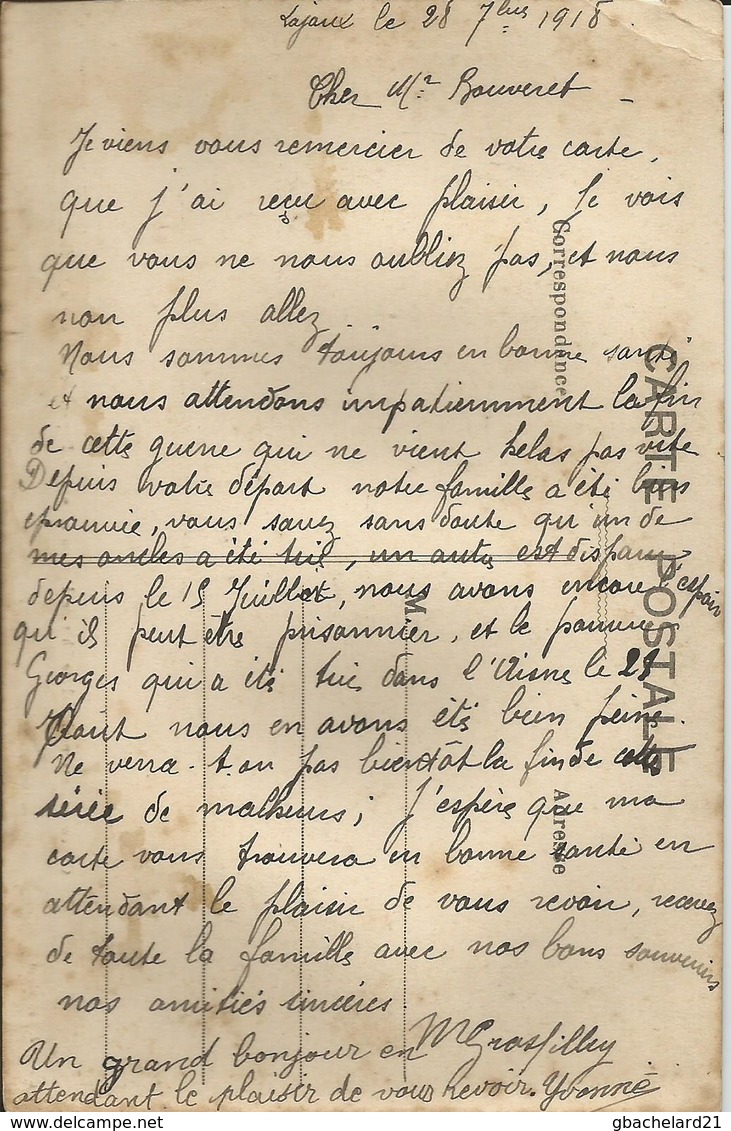 Lajoux le 28 7bre 1918
Cher Mr Bouveret
Je viens vous remercier de votre carte,
que j'ai reçu avec plaisir, Je vois
que vous ne nous oubliez pas, et nous
non plus allez
Nous sommes toujours en bonne santé
et nous attendons impatiemment la fin
de cette guerre qui ne vient helas pas vite
Depuis votre départ notre famille a été bien
éprouvée, vous savez sans doute qu'un de
mes oncles a été tué, un autre est disparu
depuis le 15 Juillet, nous avons encore espoir
qu'il peut être prisonnier, et le pauvre
Georges qui a été tué dans l'Aisne le 29
Août nous en avons été bien peiné.
Ne verra-t-on pas bientôt la fin de cette
série de malheurs; j'espère que ma
carte vous trouvera en bonne santé en
attendant le plaisir de vous revoir, recevez
de toute la famille avec nos bons souvenirs
nos amitiés sincères.
M Grosfilley
Un grand bonjour en
attendant le plaisir de vous revoir. Yvonne
CARTE POSTALE
Correspondance
Adresse
M
gbachelard21